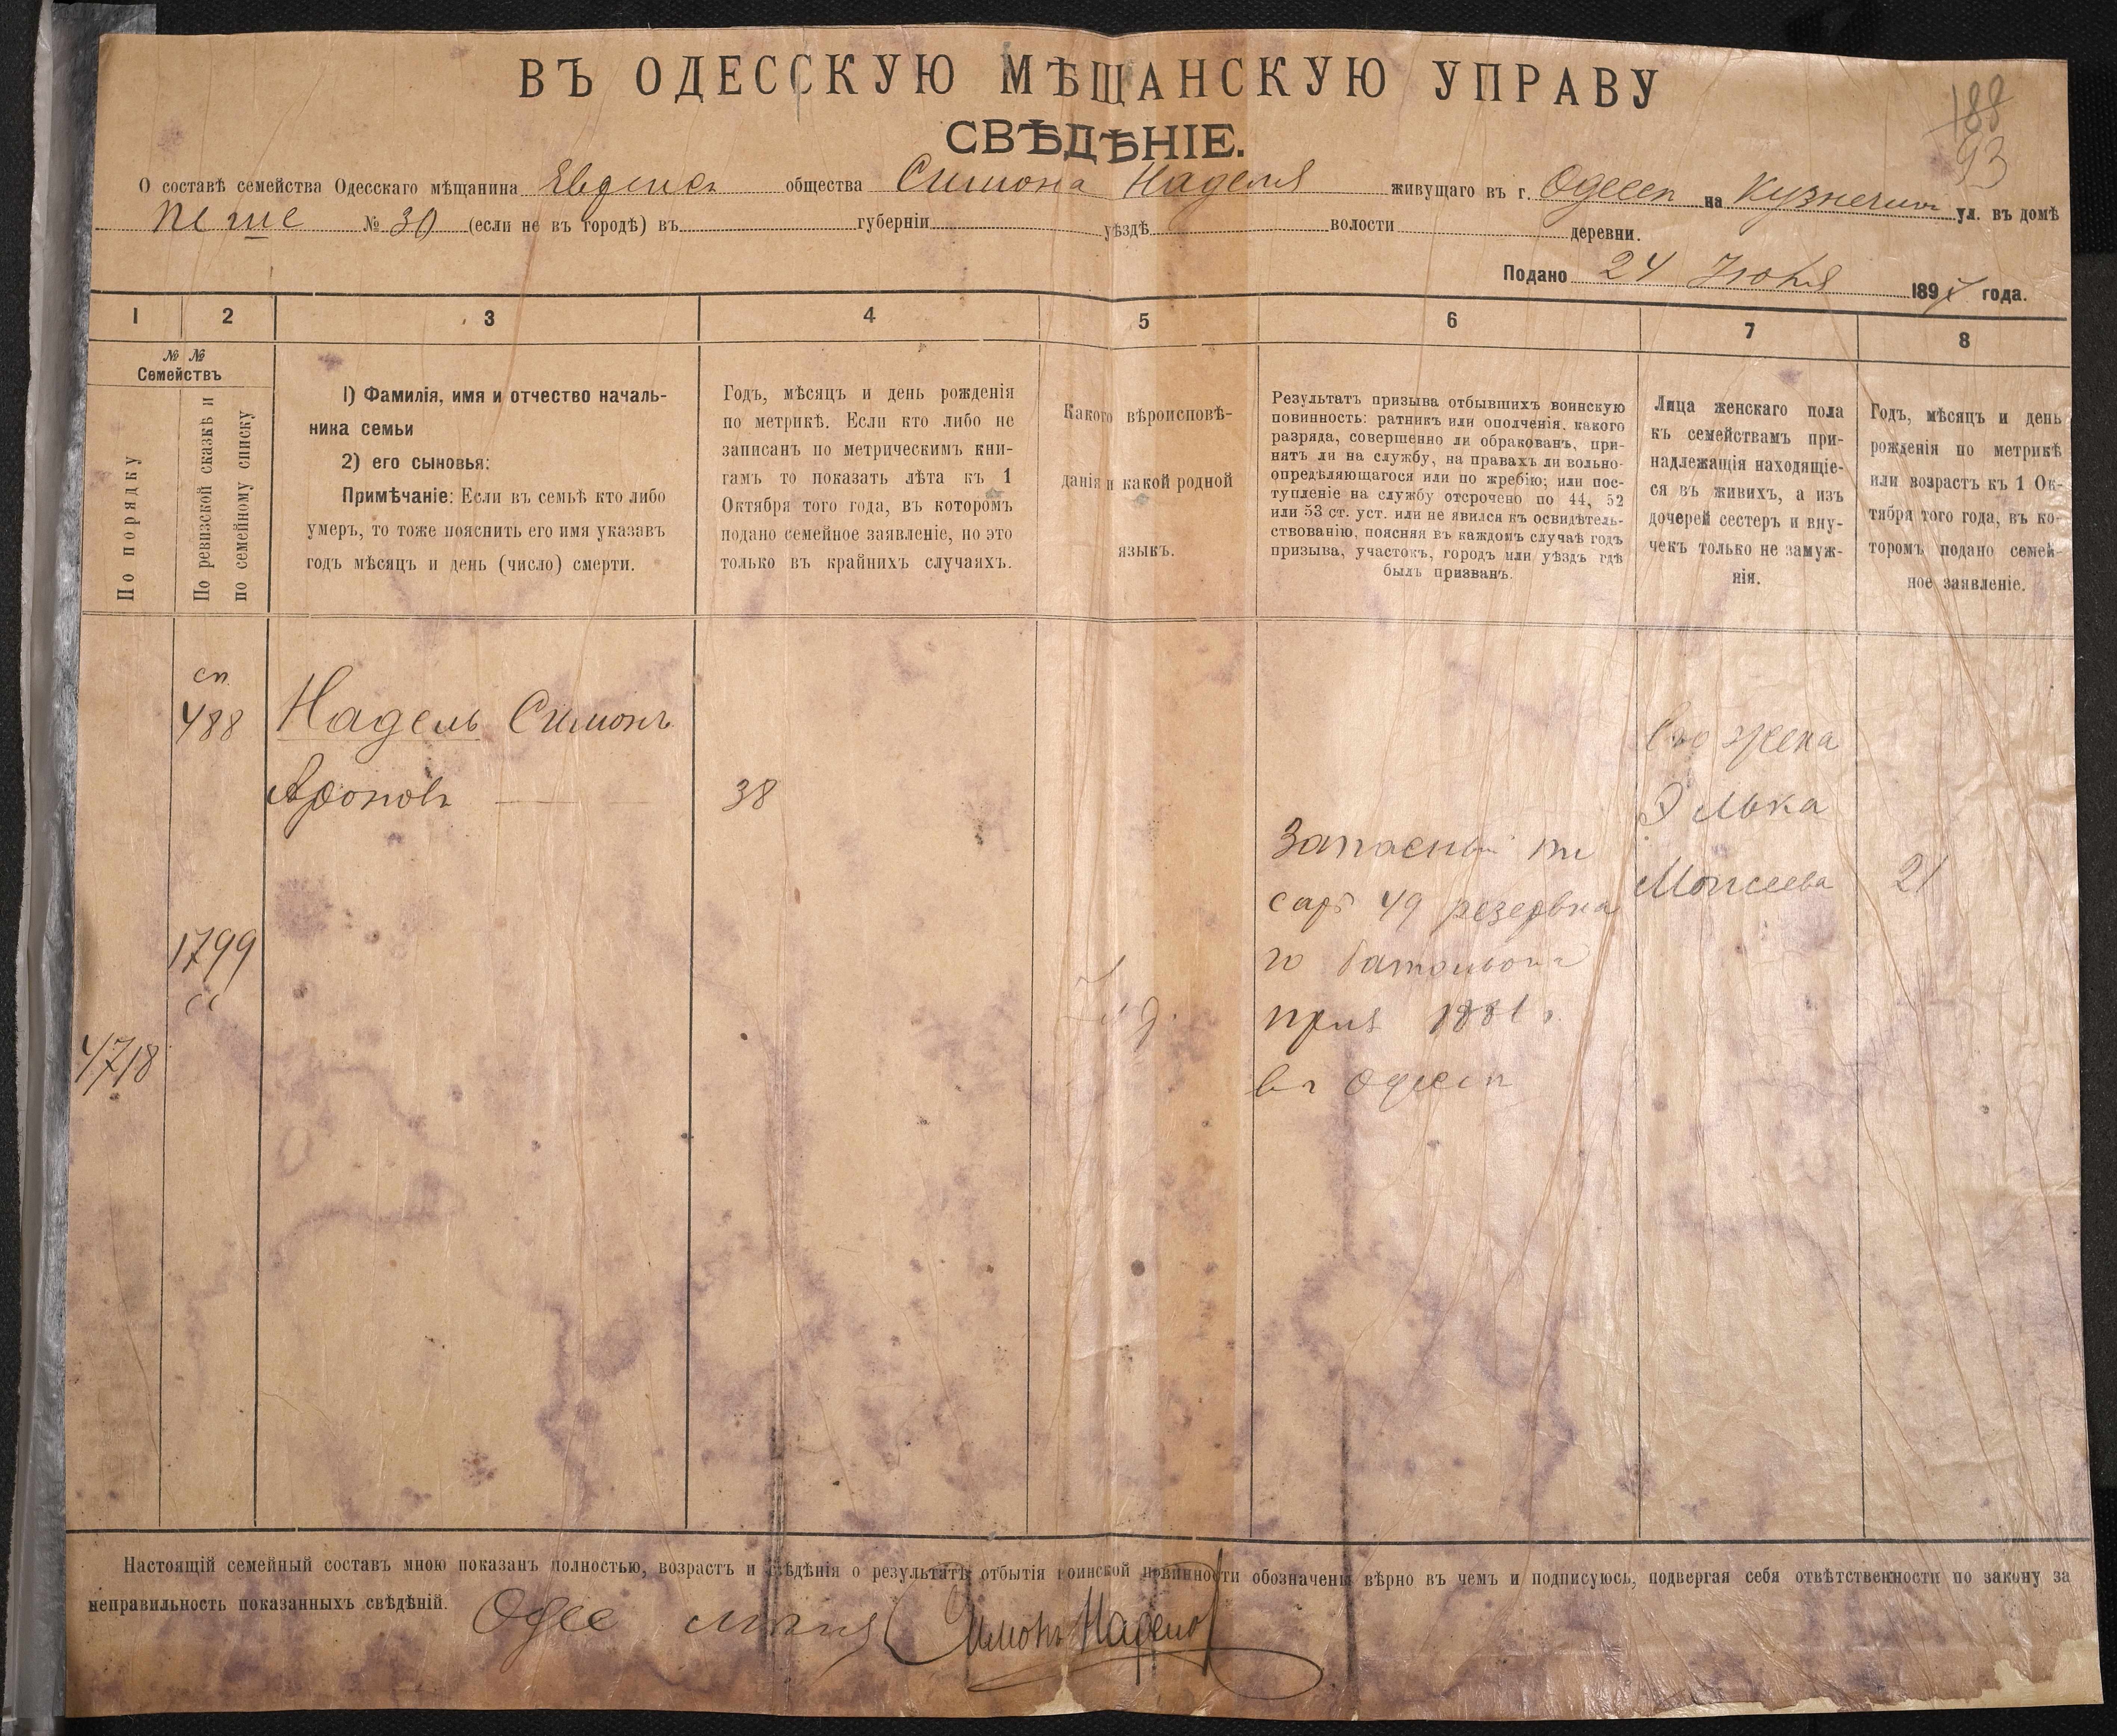 ВЪ ОДЕССКУЮ МѢЩАНСКУЮ УПРАВУ
СВѢДѢНІЕ.
188
93
О составѣ семейства Одесскаго мѣщанина Евдейск общества Симона Наделя живущаго въ г. Одессѣ на Кузнечной ул. въ домѣ
№ 30 (если не въ городѣ) въ губерніи уѣздѣ волости деревни.
Подано 24 Іюня 189 года.
1 2 3 4 5 6 7 8
№ № Семействъ
По порядку
По ревизской сказкѣ и
по семейному списку
1) Фамилія, имя и отчество началь-
ника семьи
2) его сыновья:
Примѣчаніе: Если въ семьѣ кто либо
умеръ, то тоже пояснить его имя указавъ
годъ мѣсяцъ и день (число) смерти.
Годъ, мѣсяцъ и день рожденія
по метрикѣ. Если кто либо не
записанъ по метрическимъ кни-
гамъ то показать лѣта къ 1
Октября того года, въ которомъ
подано семейное заявленіе, но это
только въ крайнихъ случаяхъ.
Какого вѣроисповѣ-
данія и какой родной
языкъ.
Результатъ призыва отбывшихъ воинскую
повинность: ратникъ или ополченія, какого
разряда, совершенно ли обракованъ, при-
нятъ ли на службу, на правахъ ли вольно-
опредѣляющагося или по жребію; или пос-
тупленіе на службу отсрочено по 44, 52
или 53 ст. уст. или не явился къ освидѣтель-
ствованію, поясняя въ каждомъ случаѣ годъ
призыва, участокъ, городъ или уѣздъ гдѣ
былъ призванъ.
Лица женскаго пола
къ семействамъ при-
надлежащія находящіе-
ся въ живихъ, а изъ
дочерей сестеръ и вну-
чекъ только не замуж-
нія.
Годъ, мѣсяцъ и день
рожденія по метрикѣ
или возрастъ къ 1 Ок-
тября того года, въ ко-
торомъ подано семей-
ное заявленіе.
сп.
488
Надель Симонъ
Ароновъ
38
1799
сс
4718
Запасный пи
сарь 49 резервна
го баталіона
приз 1881 г.
въ Одессѣ
Его жена
Элька
Моисеева
21
Настоящій семейный составъ мною показанъ полностью, возрастъ и свѣдѣнія о результатѣ отбытія воинской повинности обозначены вѣрно въ чемъ и подписуюсь, подвергая себя отвѣтственности по закону за
неправильность показанныхъ свѣдѣній.
Симонъ Надель